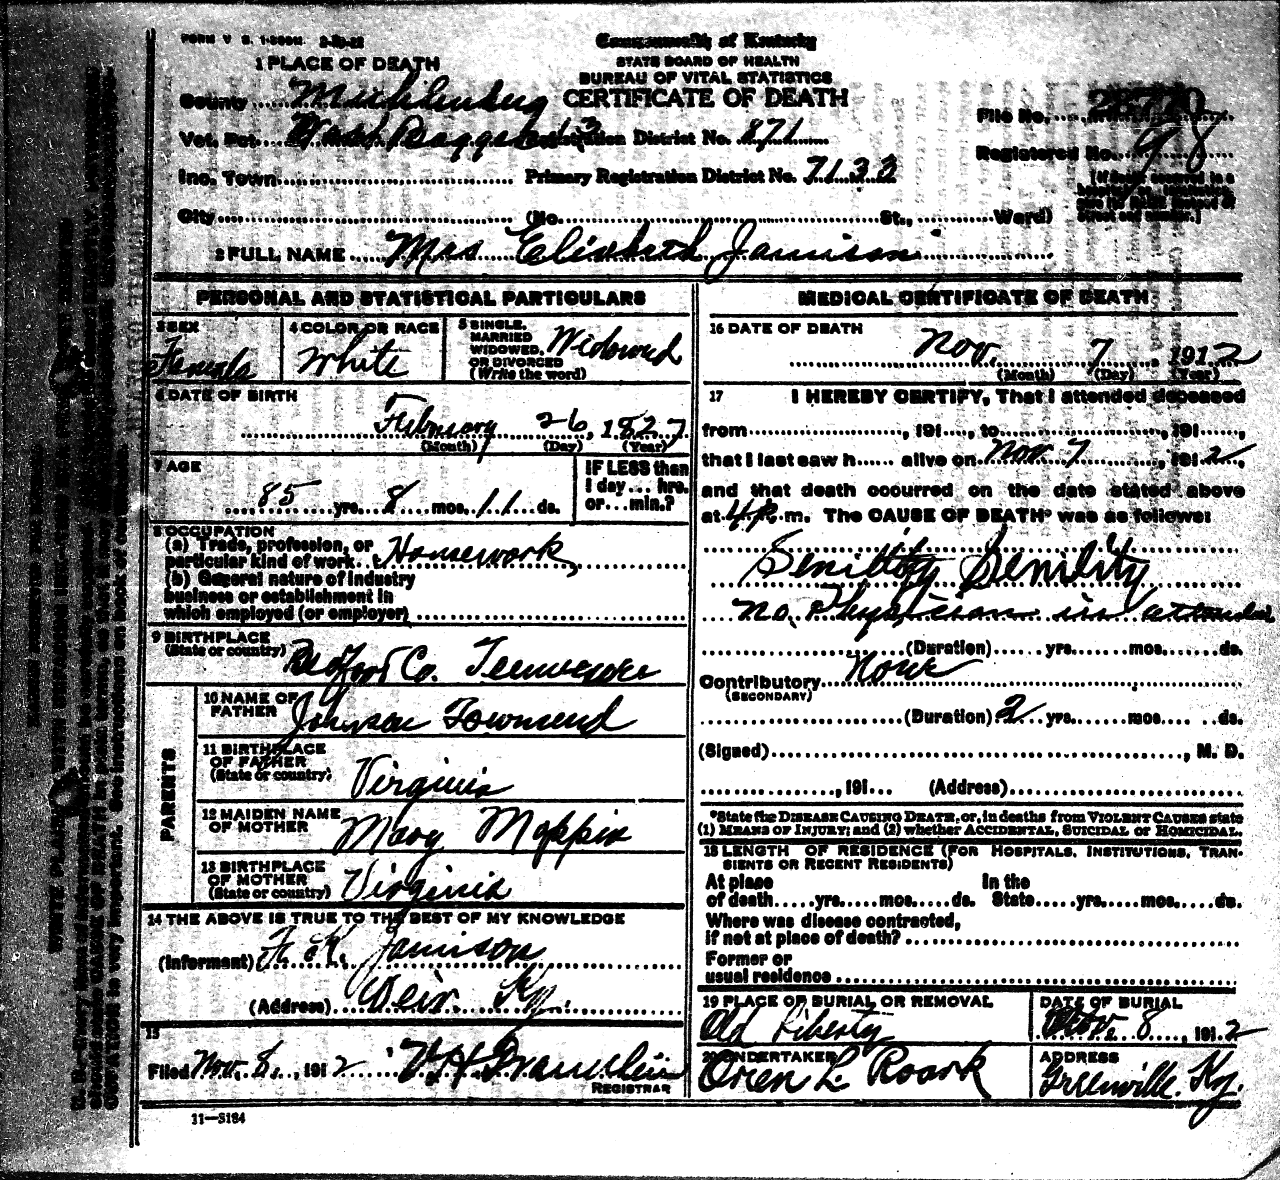 FORM V. S. 1-200M
Commonwealth of Kentucky
STATE BOARD OF HEALTH
BUREAU OF VITAL STATISTICS
CERTIFICATE OF DEATH
1 PLACE OF DEATH
County Muhlenberg
File No.
Vot. Pct. Registration District No. 871
Registered No. 98
Inc. Town Primary Registration District No. 7133
City (No. St., Ward)
2 FULL NAME Mrs Elizabeth Jamison
PERSONAL AND STATISTICAL PARTICULARS
3 SEX
Female
4 COLOR OR RACE
White
5 SINGLE, MARRIED WIDOWED, OR DIVORCED (Write the word)
Widowed
6 DATE OF BIRTH
February 26, 1827
(Month) (Day) (Year)
7 AGE
85 yrs. 8 mos. 11 ds.
IF LESS than 1 day... hrs. or... min.?
8 OCCUPATION
(a) Trade, profession, or particular kind of work Housework
(b) General nature of industry
business or establishment in
which employed (or employer)
9 BIRTHPLACE
(State or country) Bedford Co. Tennessee
PARENTS
10 NAME OF FATHER
Johnson Townsend
11 BIRTHPLACE OF FATHER
(State or country) Virginia
12 MAIDEN NAME OF MOTHER
Mary
13 BIRTHPLACE OF MOTHER
(State or country) Virginia
14 THE ABOVE IS TRUE TO THE BEST OF MY KNOWLEDGE
(Informant) Jamison
(Address) Weir Ky.
15
Filed Nov. 8, 1912
REGISTRAR
11—3184
MEDICAL CERTIFICATE OF DEATH
16 DATE OF DEATH
Nov. 7, 1912
(Month) (Day) (Year)
17 I HEREBY CERTIFY, That I attended deceased
from , 191 , to , 191 ,
that I last saw h alive on Nov 7, 1912,
and that death occurred on the date stated above
at 4 p. m. The CAUSE OF DEATH* was as follows:
Senility Senility
no. Physician in
(Duration) yrs. mos. ds.
Contributory None
(SECONDARY)
(Duration) 2 yrs. mos. ds.
(Signed) , M. D.
, 191 (Address)
*State the DISEASE CAUSING DEATH, or, in deaths from VIOLENT CAUSES state
(1) MEANS OF INJURY; and (2) whether ACCIDENTAL, SUICIDAL or HOMICIDAL.
18 LENGTH OF RESIDENCE (FOR HOSPITALS, INSTITUTIONS, TRAN-
SIENTS OR RECENT RESIDENTS)
At place In the
of death yrs. mos. ds. State yrs. mos. ds.
Where was disease contracted,
if not at place of death?
Former or
usual residence
19 PLACE OF BURIAL OR REMOVAL
Old Liberty
DATE OF BURIAL
Nov. 8, 1912
20 UNDERTAKER
Oren L. Roark
ADDRESS
Greenville. Ky.